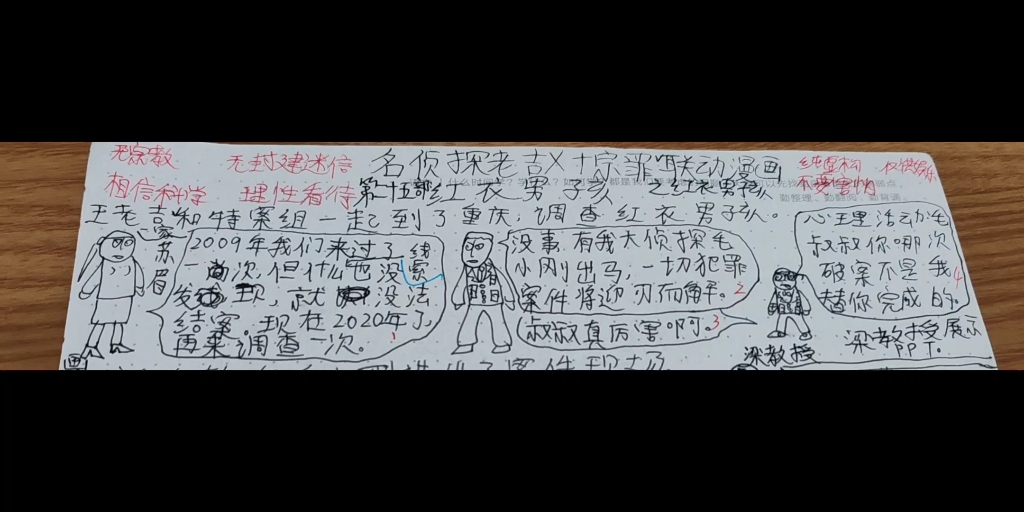 无宗教
无封建迷信
名侦探老吉X十宗罪联动漫画
纯虚构
相信科学
理性看待
第十五部红衣男子孩
之红衣男孩
不要害怕
王老吉和特案组一起到了重庆,调查红衣男子孩。
苏眉
2009年我们来过了
一次,但什么也没
线索
发现,就没法
结案。现在2020年了,
再来调查一次。
1
没事,有我大侦探毛
小刚出马,一切犯罪
案件将迎刃而解。2
叔叔真厉害啊。3
心里活动:毛
叔叔你哪次
破案不是我
替你完成的。
4
梁教授
梁教授展示